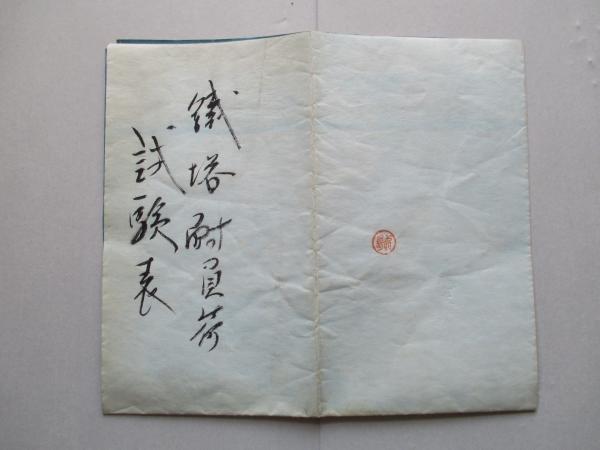 鐵塔耐員荷
試験表